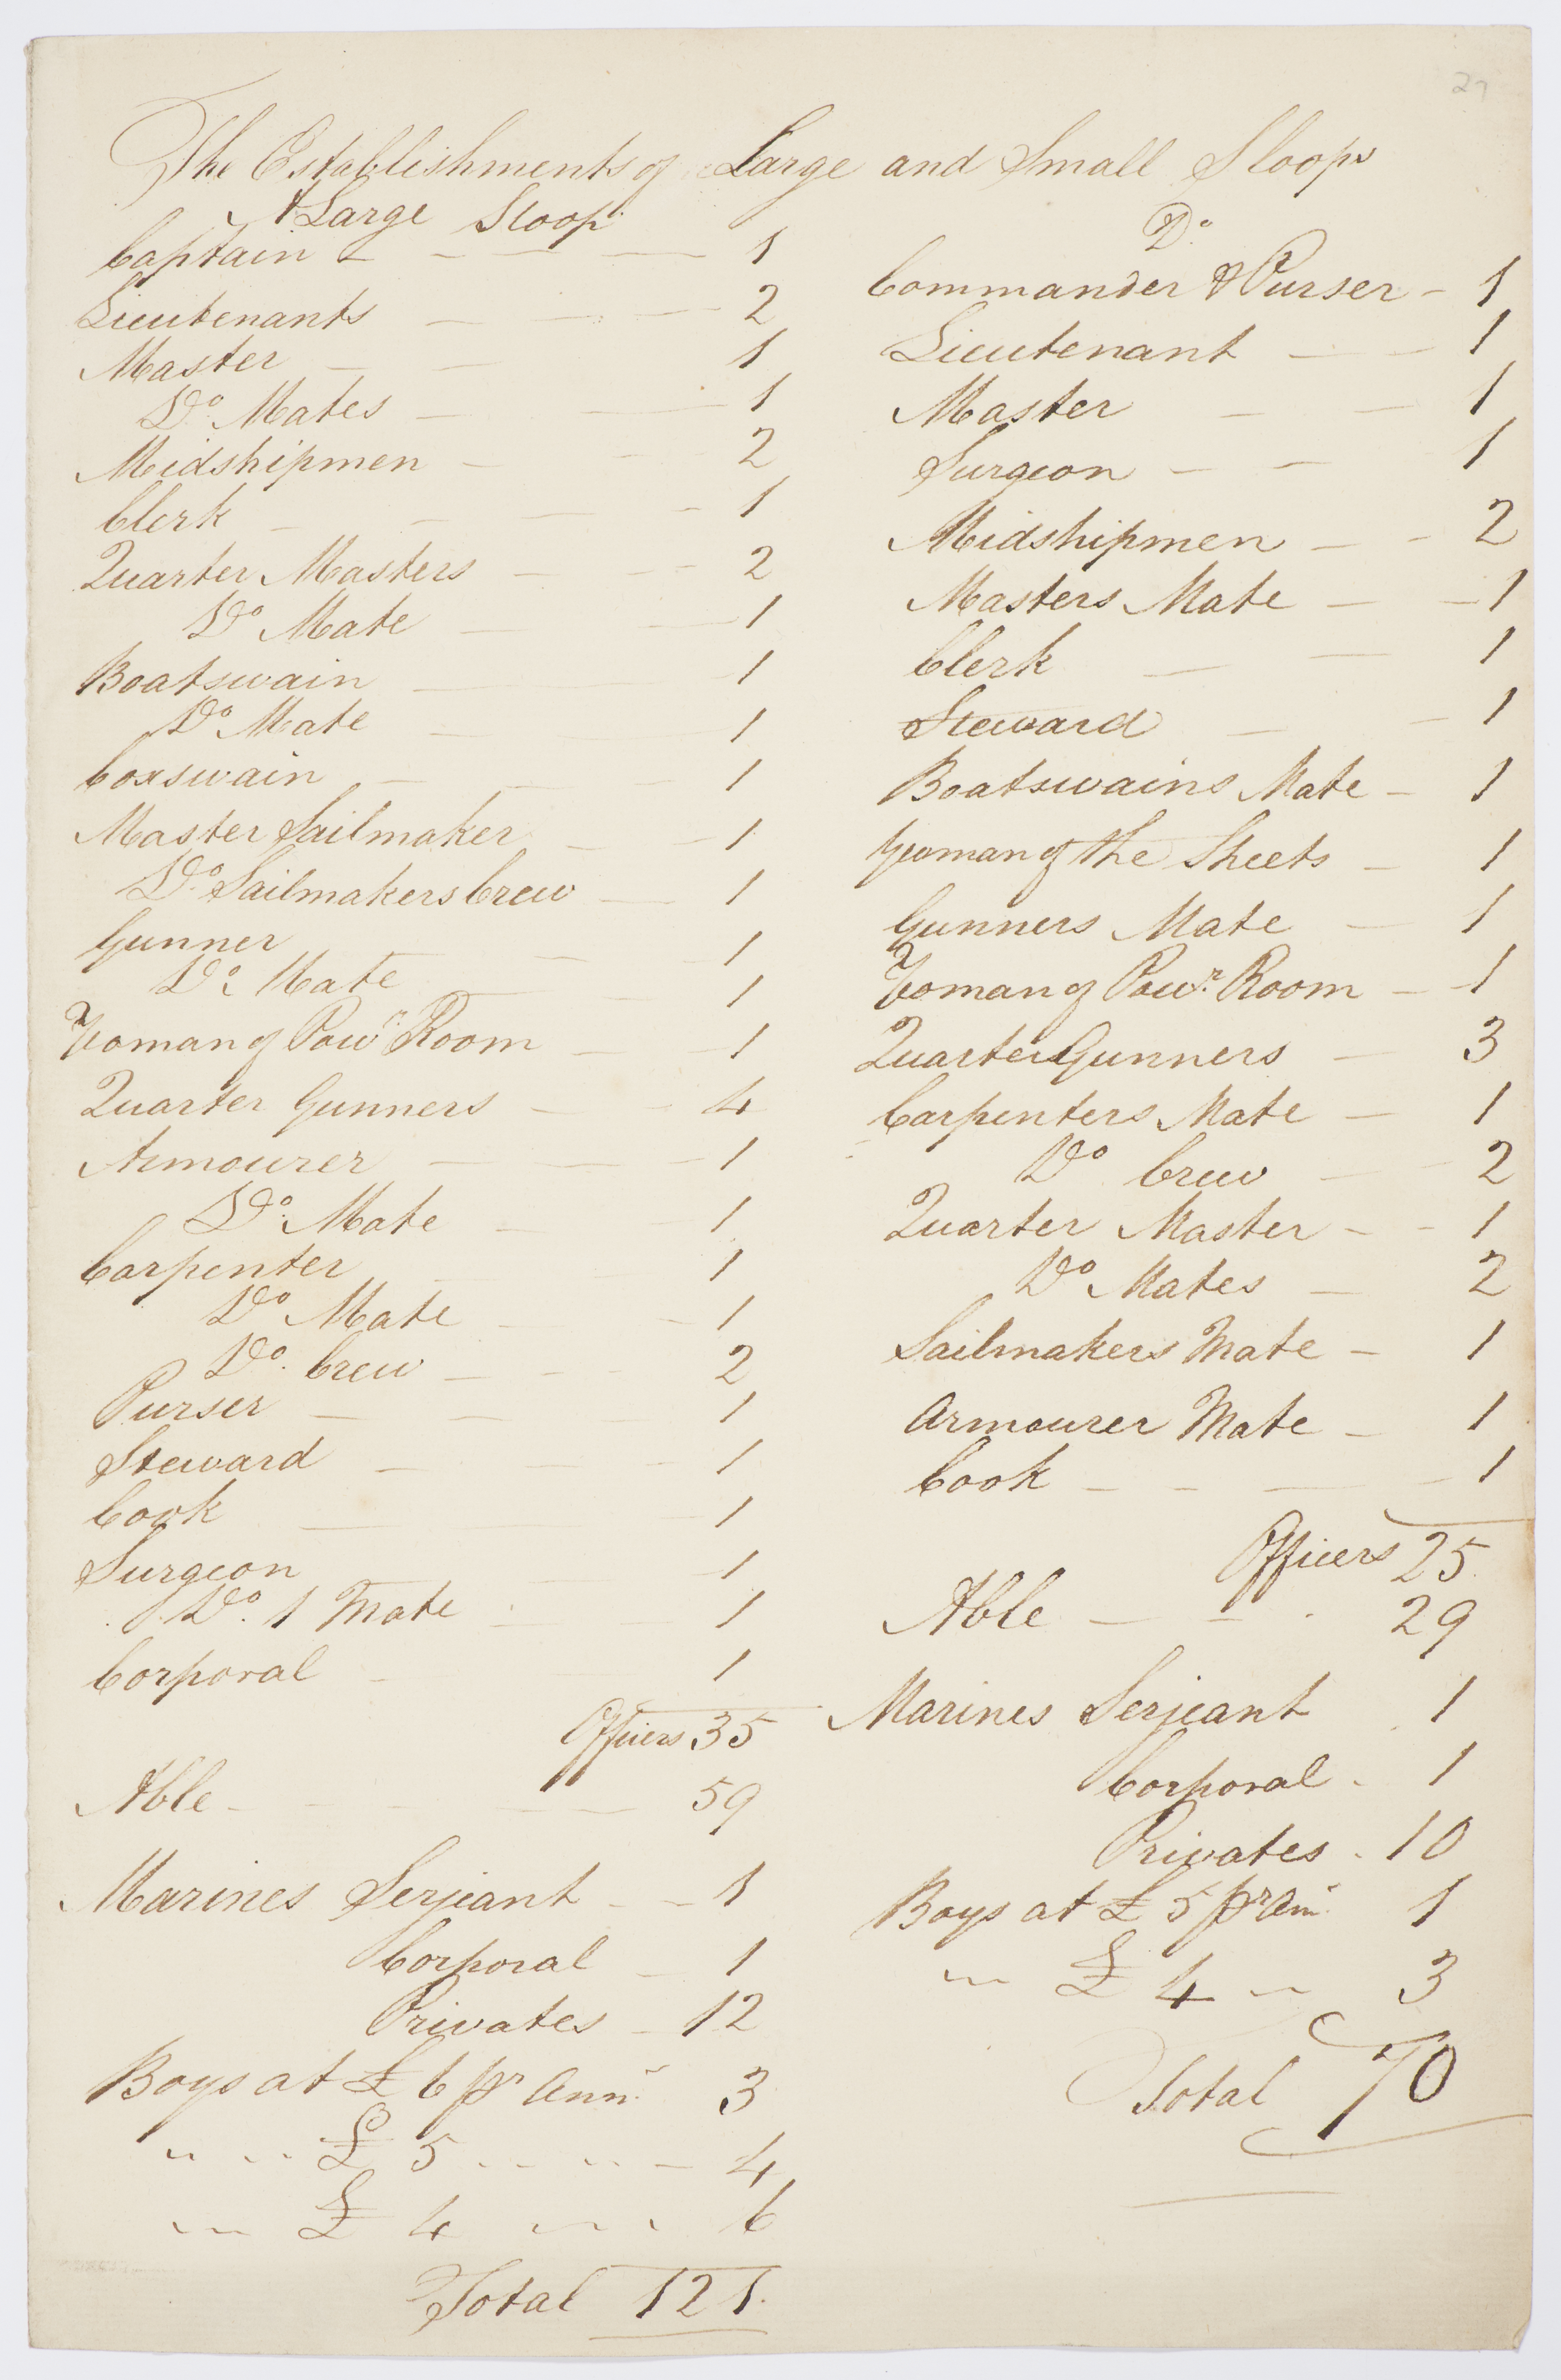 27
The Establishments of Large and Small Sloops
A Large Sloop
Captain 1
Lieutenants 2
Master 1
Do. Mates 1
Midshipmen 2
Clerk 1
Quarter Masters 2
Do Mate 1
Boatswain 1
Do Mate 1
Coxswain 1
Master Sailmaker 1
Do. Sailmakers Crew 1
Gunner 1
Do. Mate 1
Yoman of Powr. Room 1
Quarter Gunners 4
Armourer 1
Do. Mate 1
Carpenter 1
Do Mate 1
Do. Crew 2
Purser 1
Steward 1
Cook 1
Surgeon 1
Do. 1 Mate 1
Corporal 1
Officers 35
Able 59
Marines Serjeant 1
Corporal 1
Privates 12
Boys at £ 6 pr Ann. 3
" " £ 5 " " 4
" " £ 4 " " 6
Total 121.
Do.
Commander & Purser 1
Lieutenant 1
Master 1
Surgeon 1
Midshipmen 2
Masters Mate 1
Clerk 1
Steward 1
Boatswains Mate 1
Yeoman of the Sheets 1
Gunners Mate 1
Yoman of Powr. Room 1
Quarter Gunners 3
Carpenters Mate 1
Do Crew 2
Quarter Master 1
Do Mates 2
Sailmakers Mate 1
Armourer Mate 1
Cook 1
Officers 25.
Able 29
Marines Serjeant 1
Corporal 1
Privates 10
Boys at £ 5 pr Ann. 1
" £ 4 " 3
Total 70